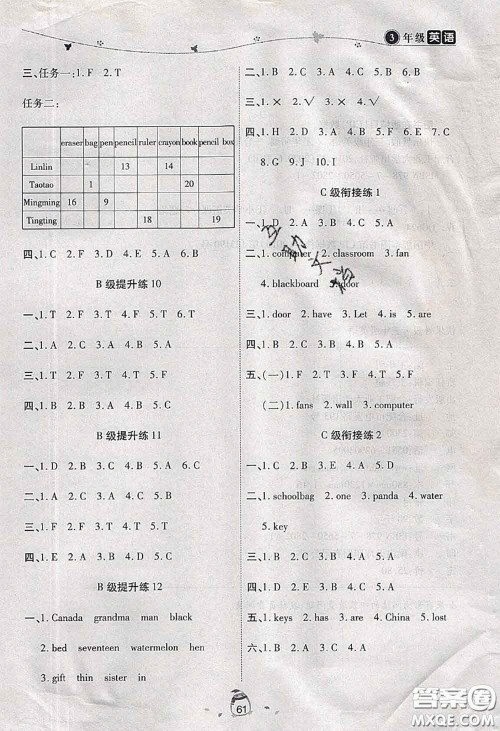 3 年级 英语
三、任务一:1. F 2. T
任务二:
eraser bag pen pencil ruler crayon book pencil box
Linlin 13 14
Taotao 1 20
Mingming 16 9
Tingting 18 19
四、1. C 2. F 3. D 4. E 5. A 6. B
B 级提升练 10
一、1. T 2. F 3. F 4. T 5. T
二、1. A 2. B 3. A 4. B 5. A
三、1. T 2. F 3. T 4. T 5. F
四、1. B 2. A 3. A 4. B 5. B
B 级提升练 11
一、1. D 2. F 3. C 4. B 5. A
二、1. A 2. A 3. B 4. B 5. A
三、1. F 2. F 3. T 4. T 5. T
四、1. E 2. A 3. D 4. B 5. C
B 级提升练 12
一、1. Canada grandma man black
2. bed seventeen watermelon hen
3. gift thin sister in
二、1. B 2. C 3. C 4. A 5. B 6. C
三、1. × 2. √ 3. × 4. √ 5. √
四、1. H 2. C 3. A 4. E 5. F 6. B 7. D
8. G 9. J 10. I
C 级衔接练 1
一、1. D 2. A 3. C 4. B 5. A
二、1. computer 2. classroom 3. fan
4. blackboard 5. door
三、1. door 2. have 3. Let 4. is 5. are
四、1. B 2. A 3. B 4. A 5. B
五、(一)1. F 2. F 3. T 4. T 5. F
(二)1. fans 2. wall 3. computer
C 级衔接练 2
一、1. B 2. C 3. A 4. C 5. A
二、1. schoolbag 2. one 3. panda 4. water
5. key
三、1. B 2. D 3. A 4. C 5. A
四、1. A 2. B 3. B 4. B 5. A
五、1. keys 2. has 3. are 4. China 5. lost
六、1. B 2. C 3. D 4. A
61
答案圈
MXQE.COM